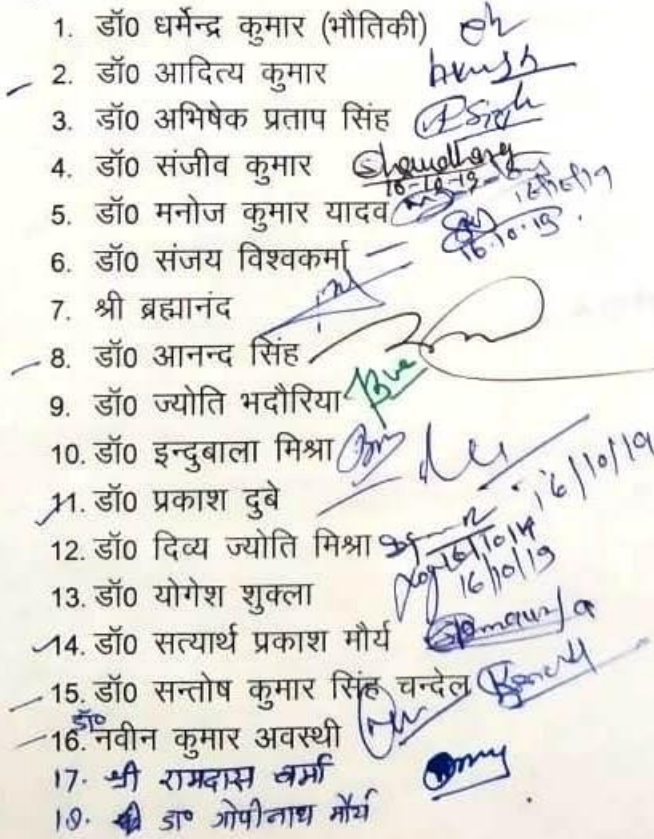 1. डॉ0 धर्मेन्द्र कुमार (भौतिकी)
2. डॉ0 आदित्य कुमार
3. डॉ0 अभिषेक प्रताप सिंह
4. डॉ0 संजीव कुमार Choudhary
16-10-19
5. डॉ0 मनोज कुमार यादव 16/10/19
16.10.19.
6. डॉ0 संजय विश्वकर्मा
7. श्री ब्रह्मानंद
8. डॉ0 आनन्द सिंह
9. डॉ0 ज्योति भदौरिया
10. डॉ0 इन्दुबाला मिश्रा
16/10/19
11. डॉ0 प्रकाश दुबे
12. डॉ0 दिव्य ज्योति मिश्रा
16/10/19
13. डॉ0 योगेश शुक्ला
14. डॉ0 सत्यार्थ प्रकाश मौर्य
15. डॉ0 सन्तोष कुमार सिंह चन्देल
16. डॉ0 नवीन कुमार अवस्थी
17. श्री रामदास वर्मा
18. डा० गोपीनाथ मौर्य